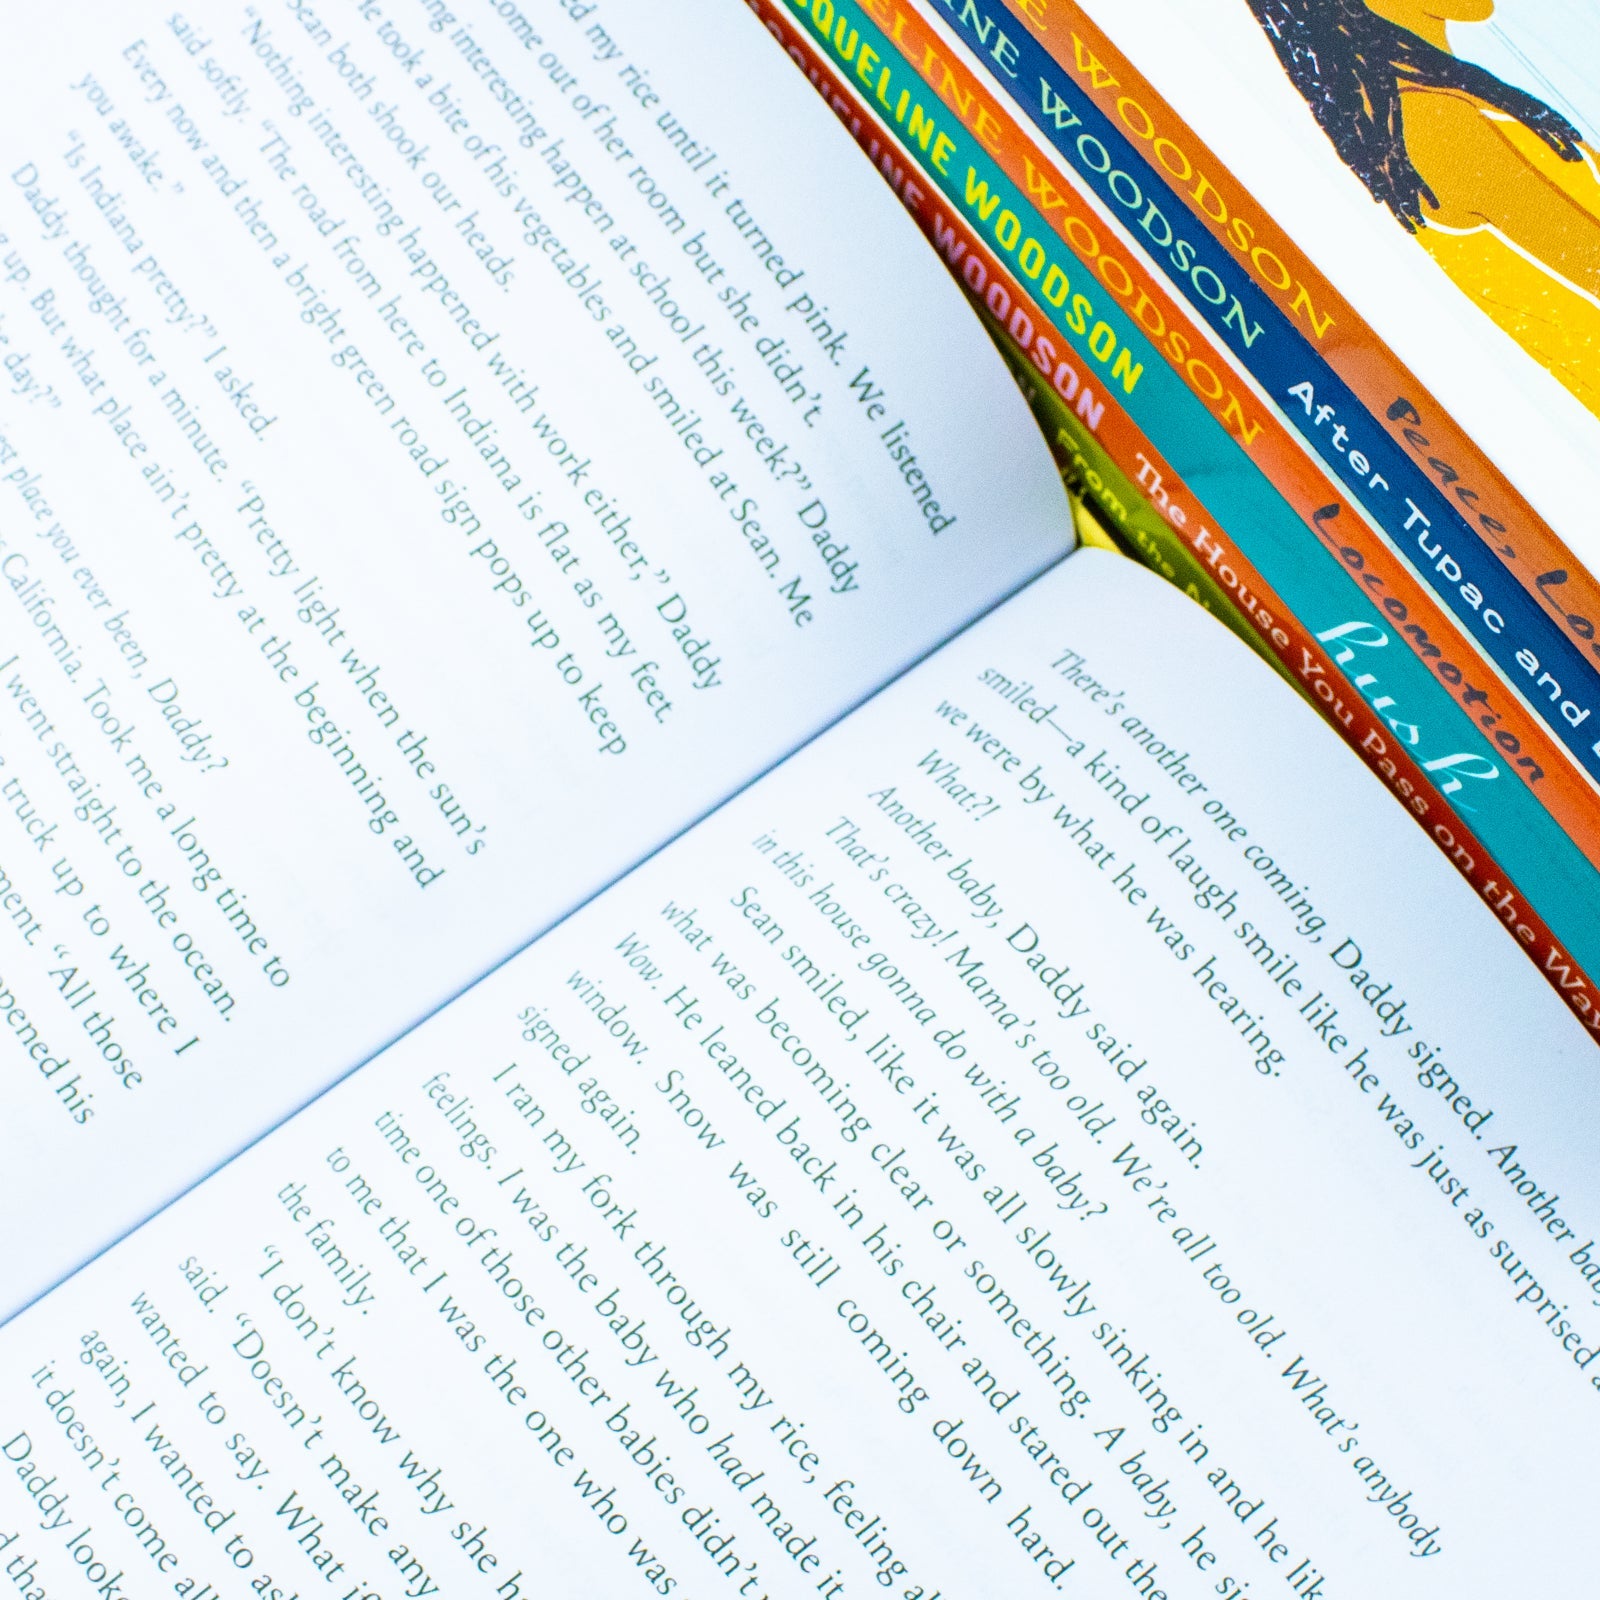 my rice until it turned pink. We listened
come out of her room but she didn't
interesting happen at school this week?" Daddy
took a bite of his vegetables and smiled at Sean. Me
Sean both shook our heads.
"Nothing interesting happened with work either," Daddy
said softly. "The road from here to Indiana is flat as my feet.
Every now and then a bright green road sign pops up to keep
you awake."
"Is Indiana pretty?" I asked.
Daddy thought for a minute. "Pretty light when the sun's
up. But what place ain't pretty at the beginning and
day?"
place you ever been, Daddy?
California. Took me a long time to
I went straight to the ocean.
truck up to where I
"All those
his
There's another one coming, Daddy signed. Another
smiled—a kind of laugh smile like he was just as surprised
we were by what he was hearing.
What?!
Another baby, Daddy said again.
That's crazy! Mama's too old. We're all too old. What's anybody
in this house gonna do with a baby?
Sean smiled, like it was all slowly sinking in and he
what was becoming clear or something. A baby, he
Wow. He leaned back in his chair and stared out the
window. Snow was still coming down hard.
signed again.
I ran my fork through my rice, feeling
feelings. I was the baby who had made it
time one of those other babies didn't
to me that I was the one who was
the family.
"I don't know why she
said. "Doesn't make any
wanted to say. What if
again, I wanted to
it doesn't come
Daddy
WOODSON Peace,
WOODSON After Tupac and
WOODSON Locomotion
JACQUELINE WOODSON hush
JACQUELINE WOODSON The House You Pass on the Way
From the